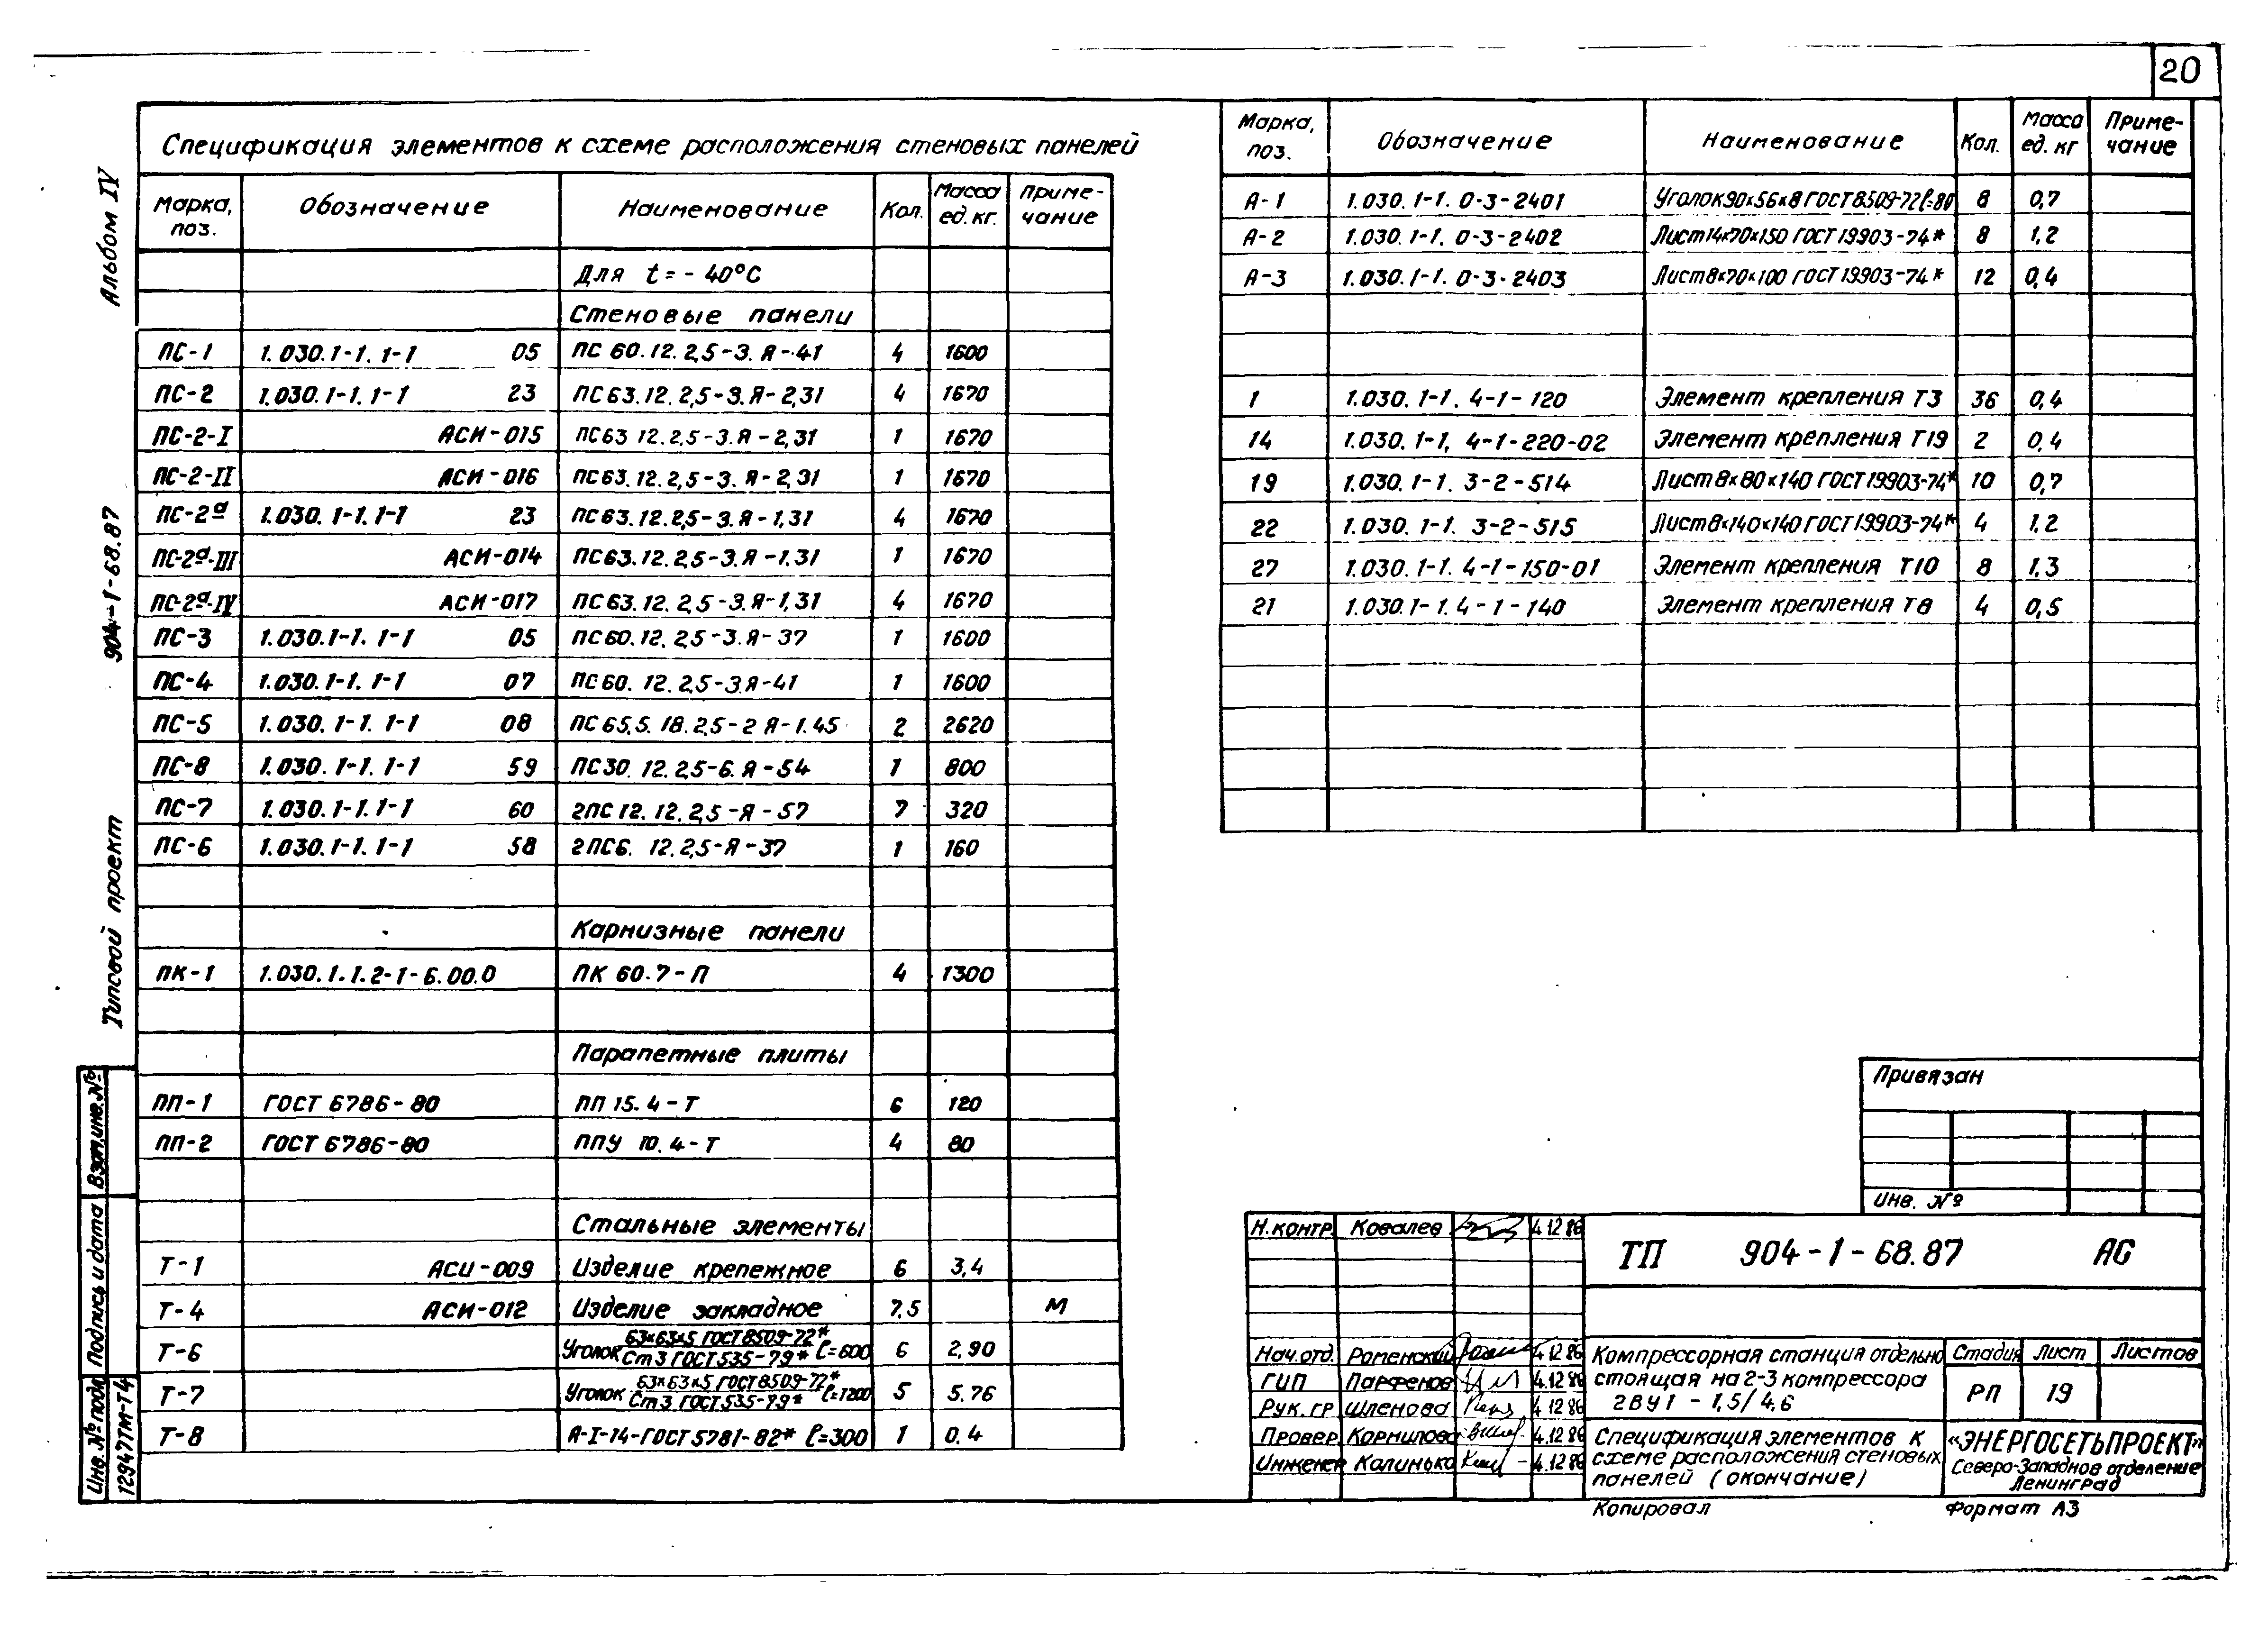 20
Альбом IV
904-1-68.87
Типовой проект
Взам.инв.№
Подпись и дата
Инв.№ подл.
12947ТМ-Т4
Спецификация элементов к схеме расположения стеновых панелей
Марка, поз. Обозначение Наименование Кол. Масса ед. кг. Приме-чание
Для t = - 40°С
Стеновые панели
ПС-1 1.030.1-1.1-1 05 ПС 60.12.2,5-3.Я-41 4 1600
ПС-2 1.030.1-1.1-1 23 ПС63.12.2,5-3.Я-2,31 4 1670
ПС-2-I АСИ-015 ПС63 12.2,5-3.Я-2,31 1 1670
ПС-2-II АСИ-016 ПС63.12.2,5-3.Я-2,31 1 1670
ПС-2а 1.030.1-1.1-1 23 ПС63.12.2,5-3.Я-1,31 4 1670
ПС-2а-III АСИ-014 ПС63.12.2,5-3.Я-1.31 1 1670
ПС-2а-IV АСИ-017 ПС63.12.2,5-3.Я-1,31 4 1670
ПС-3 1.030.1-1.1-1 05 ПС60.12.2,5-3.Я-37 1 1600
ПС-4 1.030.1-1.1-1 07 ПС60.12.2,5-3.Я-41 1 1600
ПС-5 1.030.1-1.1-1 08 ПС65,5.18.2,5-2 Я-1.45 2 2620
ПС-8 1.030.1-1.1-1 59 ПС30.12.25-6.Я-54 1 800
ПС-7 1.030.1-1.1-1 60 2ПС12.12.2,5-Я-57 7 320
ПС-6 1.030.1-1.1-1 58 2ПС6.12.2,5-Я-37 1 160
Карнизные панели
ПК-1 1.030.1.1.2-1-6.00.0 ПК 60.7-П 4 1300
Парапетные плиты
ПП-1 ГОСТ 6786-80 ПП 15.4-Т 6 120
ПП-2 ГОСТ 6786-80 ППУ 10.4-Т 4 80
Стальные элементы
Т-1 АСИ-009 Изделие крепежное 6 3,4
Т-4 АСИ-012 Изделие закладное 7,5 М
Т-6 Уголок 63×63×5 ГОСТ8509-72* / Ст3 ГОСТ535-79* ℓ=600 6 2,90
Т-7 Уголок 63×63×5 ГОСТ8509-72* / Ст3 ГОСТ535-79* ℓ=1200 5 5.76
Т-8 А-I-14-ГОСТ5781-82* ℓ=300 1 0.4
Марка, поз. Обозначение Наименование Кол. Масса ед. кг Приме-чание
А-1 1.030.1-1.0-3-2401 Уголок90×56×8ГОСТ8509-72ℓ=80 8 0,7
А-2 1.030.1-1.0-3-2402 Лист14×70×150 ГОСТ19903-74* 8 1,2
А-3 1.030.1-1.0-3-2403 Лист8×70×100 ГОСТ19903-74* 12 0,4
1 1.030.1-1.4-1-120 Элемент крепления Т3 36 0,4
14 1.030.1-1,4-1-220-02 Элемент крепления Т19 2 0,4
19 1.030.1-1.3-2-514 Лист8×80×140 ГОСТ19903-74* 10 0,7
22 1.030.1-1.3-2-515 Лист8×140×140ГОСТ19903-74* 4 1,2
27 1.030.1-1.4-1-150-01 Элемент крепления Т10 8 1,3
21 1.030.1-1.4-1-140 Элемент крепления Т8 4 0,5
Привязан
Инв. №
Н.контр. Ковалев 4.12 86
Нач.отд. Роменский 4.12 86
ГИП Парфенов 4.12 86
Рук. гр Шленова 4.12 86
Провер. Корнилова 4.12 86
Инженер Калинько 4.12 86
ТП 904-1-68.87 АС
Компрессорная станция отдельно
стоящая на 2-3 компрессора
2ВУ1 - 1,5/46
Стадия Лист Листов
РП 19
Спецификация элементов к
схеме расположения стеновых
панелей (окончание)
«ЭНЕРГОСЕТЬПРОЕКТ»
Северо-Западное отделение
Ленинград
Копировал Формат А3